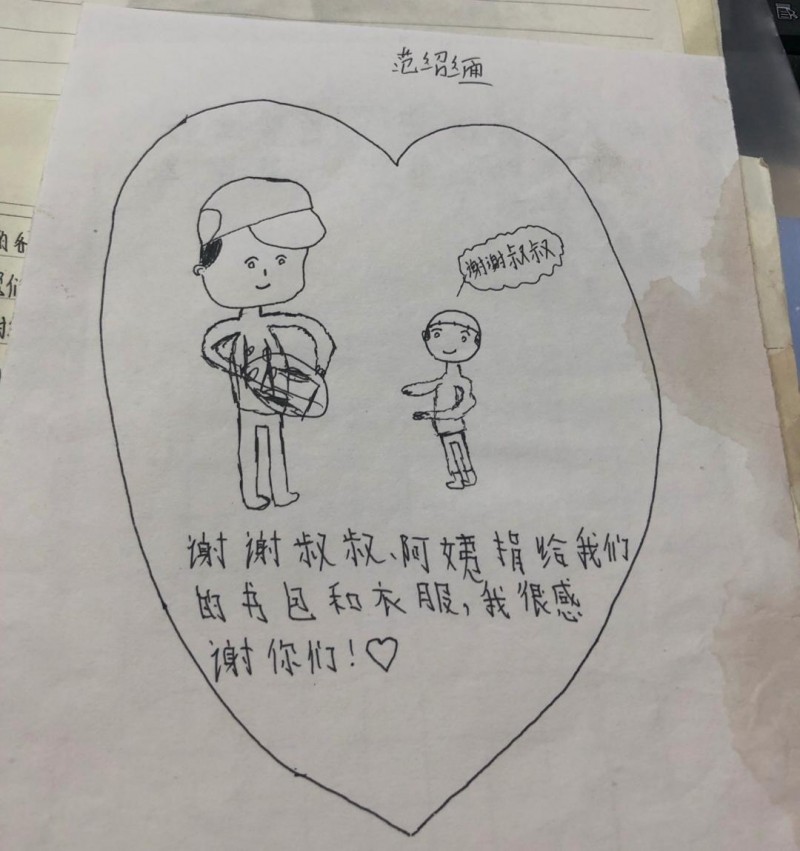 范绍缅
谢谢叔叔
谢谢叔叔、阿姨捐给我们
的书包和衣服,我很感
谢你们!♡